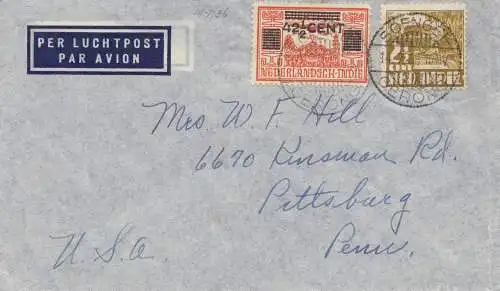 PER LUCHTPOST
PAR AVION
42½ CENT
NEDERLANDSCH-INDIË
2½
NED. INDIE
Mrs. W. F. Hill
6670 Kinsman Rd.
Pittsburg
Penn.
U.S.A.